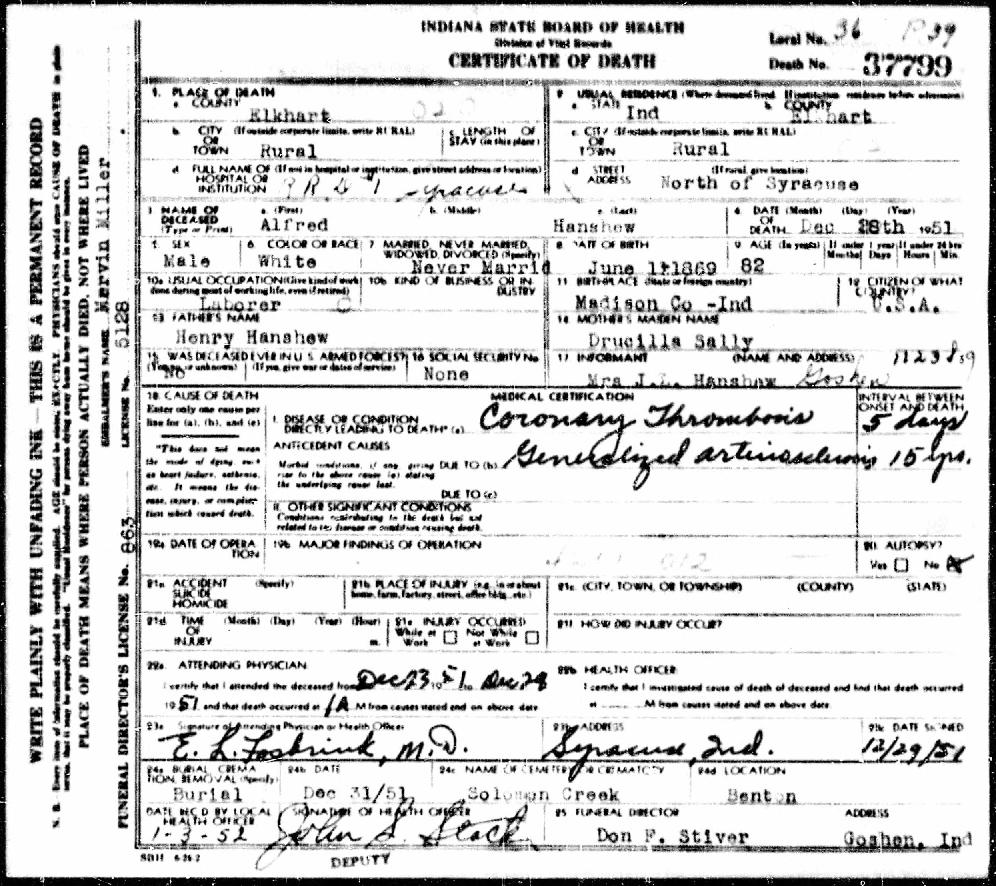 INDIANA STATE BOARD OF HEALTH
Division of Vital Records
CERTIFICATE OF DEATH
Local No. 36
Death No. 37799
1. PLACE OF DEATH
a. COUNTY Elkhart
2. USUAL RESIDENCE (Where deceased lived. If institution: residence before admission)
a. STATE Ind b. COUNTY Elkhart
b. CITY OR TOWN (If outside corporate limits, write RURAL) Rural
c. LENGTH OF STAY (in this place)
c. CITY OR TOWN (If outside corporate limits, write RURAL) Rural
d. FULL NAME OF HOSPITAL OR INSTITUTION (If not in hospital or institution, give street address or location) Syracuse
d. STREET ADDRESS (If rural, give location) North of Syracuse
3. NAME OF DECEASED (Type or Print) a. (First) Alfred b. (Middle) c. (Last) Hanshew
4. DATE OF DEATH (Month) (Day) (Year) Dec 28th 1951
5. SEX Male
6. COLOR OR RACE White
7. MARRIED, NEVER MARRIED, WIDOWED, DIVORCED (Specify) Never Marrid
8. DATE OF BIRTH June 11 1869
9. AGE (In years) 82 If under 1 year Months Days If under 24 hrs Hours Min.
10a. USUAL OCCUPATION (Give kind of work done during most of working life, even if retired) Laborer
10b. KIND OF BUSINESS OR INDUSTRY
11. BIRTHPLACE (State or foreign country) Madison Co -Ind
12. CITIZEN OF WHAT COUNTRY? U.S.A.
13. FATHER'S NAME Henry Hanshew
14. MOTHER'S MAIDEN NAME Drucilla Sally
15. WAS DECEASED EVER IN U.S. ARMED FORCES? (Yes, no or unknown) (If you, give war or dates of service) No
16. SOCIAL SECURITY No. None
17. INFORMANT (NAME AND ADDRESS) Mrs J.L. Hanshew Goshen
18. CAUSE OF DEATH
Enter only one cause per line for (a), (b), and (c)
MEDICAL CERTIFICATION
INTERVAL BETWEEN ONSET AND DEATH
I. DISEASE OR CONDITION DIRECTLY LEADING TO DEATH* (a) Coronary Thrombosis 5 days
*This does not mean the mode of dying, such as heart failure, asthenia, etc. It means the disease, injury, or complication which caused death.
ANTECEDENT CAUSES
Morbid conditions, if any, giving rise to the above cause (a) stating the underlying cause last.
DUE TO (b) Generalized arteriosclerosis 15 yrs.
DUE TO (c)
II. OTHER SIGNIFICANT CONDITIONS
Conditions contributing to the death but not related to the disease or condition causing death.
19a. DATE OF OPERATION
19b. MAJOR FINDINGS OF OPERATION
20. AUTOPSY? Yes No
21a. ACCIDENT SUICIDE HOMICIDE (Specify)
21b. PLACE OF INJURY (e.g. in or about home, farm, factory, street, office bldg., etc.)
21c. (CITY, TOWN, OR TOWNSHIP) (COUNTY) (STATE)
21d. TIME OF INJURY (Month) (Day) (Year) (Hour) m.
21e. INJURY OCCURRED While at Work Not While at Work
21f. HOW DID INJURY OCCUR?
22a. ATTENDING PHYSICIAN
I certify that I attended the deceased from Dec 23 1951 Dec 28
1951 and that death occurred at 1A M from causes stated and on above date
22b. HEALTH OFFICER
I certify that I investigated cause of death of deceased and find that death occurred at M from causes stated and on above date
23a. Signature of Attending Physician or Health Officer
E. L. Fosbrink, M.D.
23b. ADDRESS Syracuse, Ind.
23c. DATE SIGNED 12/29/51
24a. BURIAL, CREMATION, REMOVAL (Specify) Burial
24b. DATE Dec 31/51
24c. NAME OF CEMETERY OR CREMATORY Solomon Creek
24d. LOCATION Benton
DATE REC'D BY LOCAL HEALTH OFFICER 1-3-52
SIGNATURE OF HEALTH OFFICER John S. Stack
DEPUTY
25. FUNERAL DIRECTOR Don F. Stiver
ADDRESS Goshen, Ind
SBH 6-26-2
N. B. Every item of information should be carefully supplied. AGE should be stated EXACTLY. PHYSICIANS should state CAUSE OF DEATH in plain terms, that it may be properly classified. "Usual Residence" for persons dying away from home should be given in every instance.
WRITE PLAINLY WITH UNFADING INK — THIS IS A PERMANENT RECORD
PLACE OF DEATH MEANS WHERE PERSON ACTUALLY DIED, NOT WHERE LIVED
EMBALMER'S NAME Mervin Miller
FUNERAL DIRECTOR'S LICENSE No. 863 LICENSE No. 5128